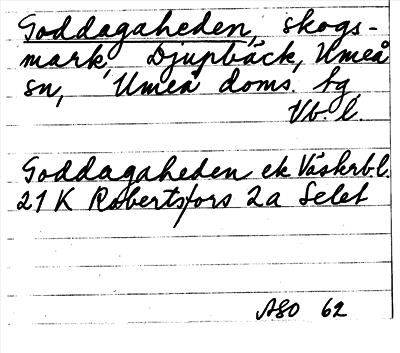 Goddagaheden, skogs-
mark, Djupbäck, Umeå
sn, Umeå doms. fg,
Vb. l.
Goddagaheden ek Väskrb.l.
21 K Robertsfors 2a Selet
ASO 62